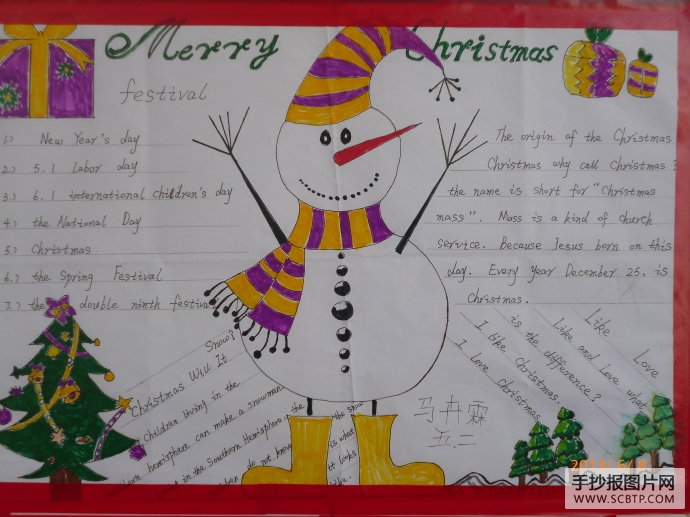 Merry Christmas
festival
1.) New Year's day
2.) 5.1 Labor day
3.) 6.1 international children's day
4.) the National Day
5.) Christmas
6.) the Spring Festival
7.) the double ninth festival
The origin of the Christmas
Christmas why call Christmas?
the name is short for "Christmas
mass". Mass is a kind of church
service. Because Jesus born on this
day. Every year December 25, is
Christmas.
Like Love
Like and Love what
is the difference?
I like Christmas.
I love Christmas
Snow?
Christmas Will It
children living in the
hemisphere can make a snowman.
in the Southern Hemisphere, the
do not know
the snow
is what
it looks
like.
马卉霖
五.二
手抄报图片网
WWW.SCBTP.COM